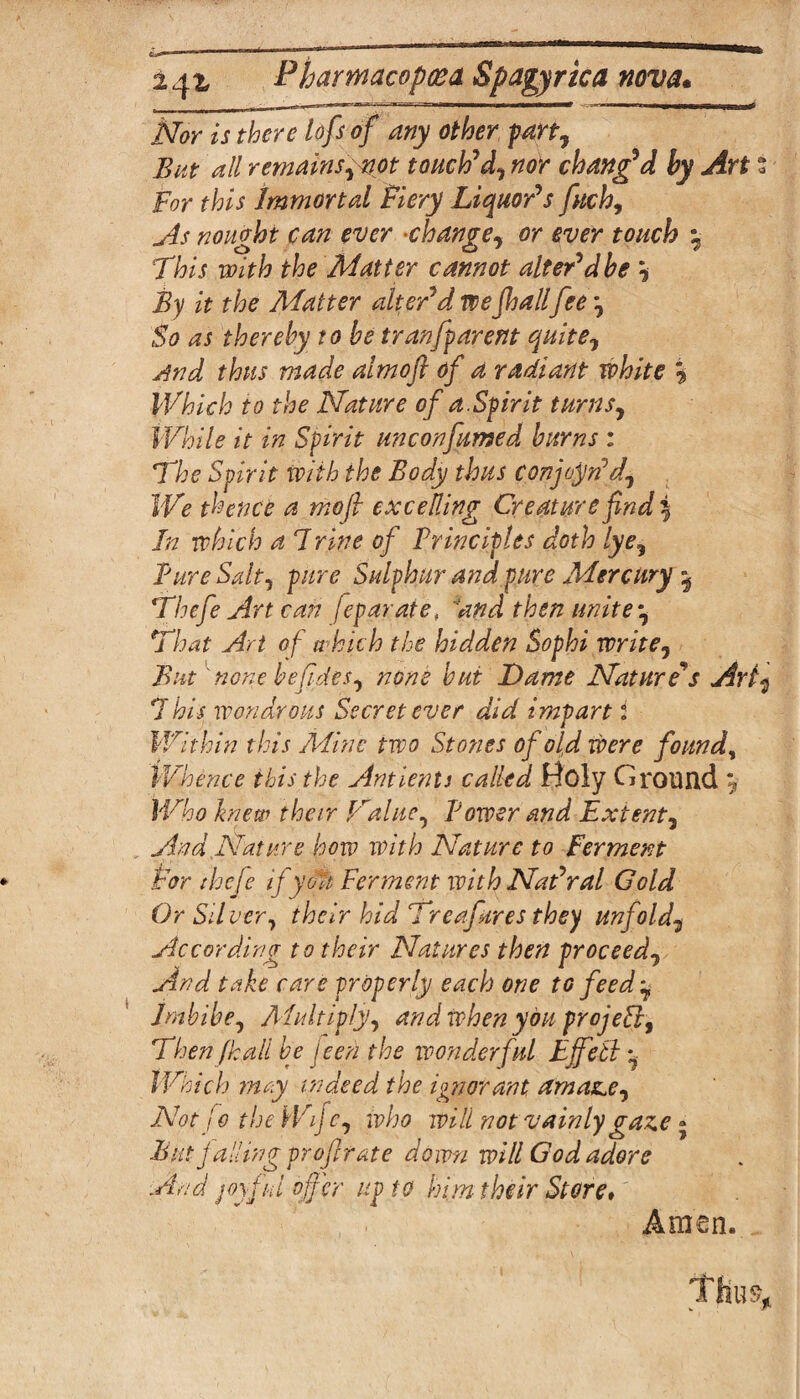 242 Pharmacopœa Spagyrica nova.
Nor is there loſs of any other part,
But all remains, not touch'd, nor chang'd by Art:
For this Immortal Fiery Liquor's ſuch,
As nought can ever change, or ever touch;
This with the Matter cannot alter'd be;
By it the Matter alter'd we ſhall ſee;
So as thereby to be tranſparent quite,
And thus made almoſt of a radiant white;
Which to the Nature of a Spirit turns,
While it in Spirit unconſumed burns:
The Spirit with the Body thus conjoyn'd,
We thence a moſt excelling Creature find;
In which a Trine of Principles doth lye,
Pure Salt, pure Sulphur and pure Mercury;
Theſe Art can ſeparate, and then unite;
That Art of which the hidden Sophi write,
But none beſides, none but Dame Nature's Art,
This wondrous Secret ever did impart:
Within this Mine two Stones of old were found,
Whence this the Antients called Holy Ground;
Who knew their Value, Power and Extent,
And Nature how with Nature to Ferment
For theſe if you Ferment with Nat'ral Gold
Or Silver, their hid Treaſures they unfold,
According to their Natures then proceed,
And take care properly each one to feed;
Imbibe, Multiply, and when you project,
Then ſhall be ſeen the wonderful Effect;
Which may indeed the ignorant amaze,
Not ſo the Wiſe, who will not vainly gaze;
But falling proſtrate down will God adore
And joyful offer up to him their Store.
Amen.
Thus,